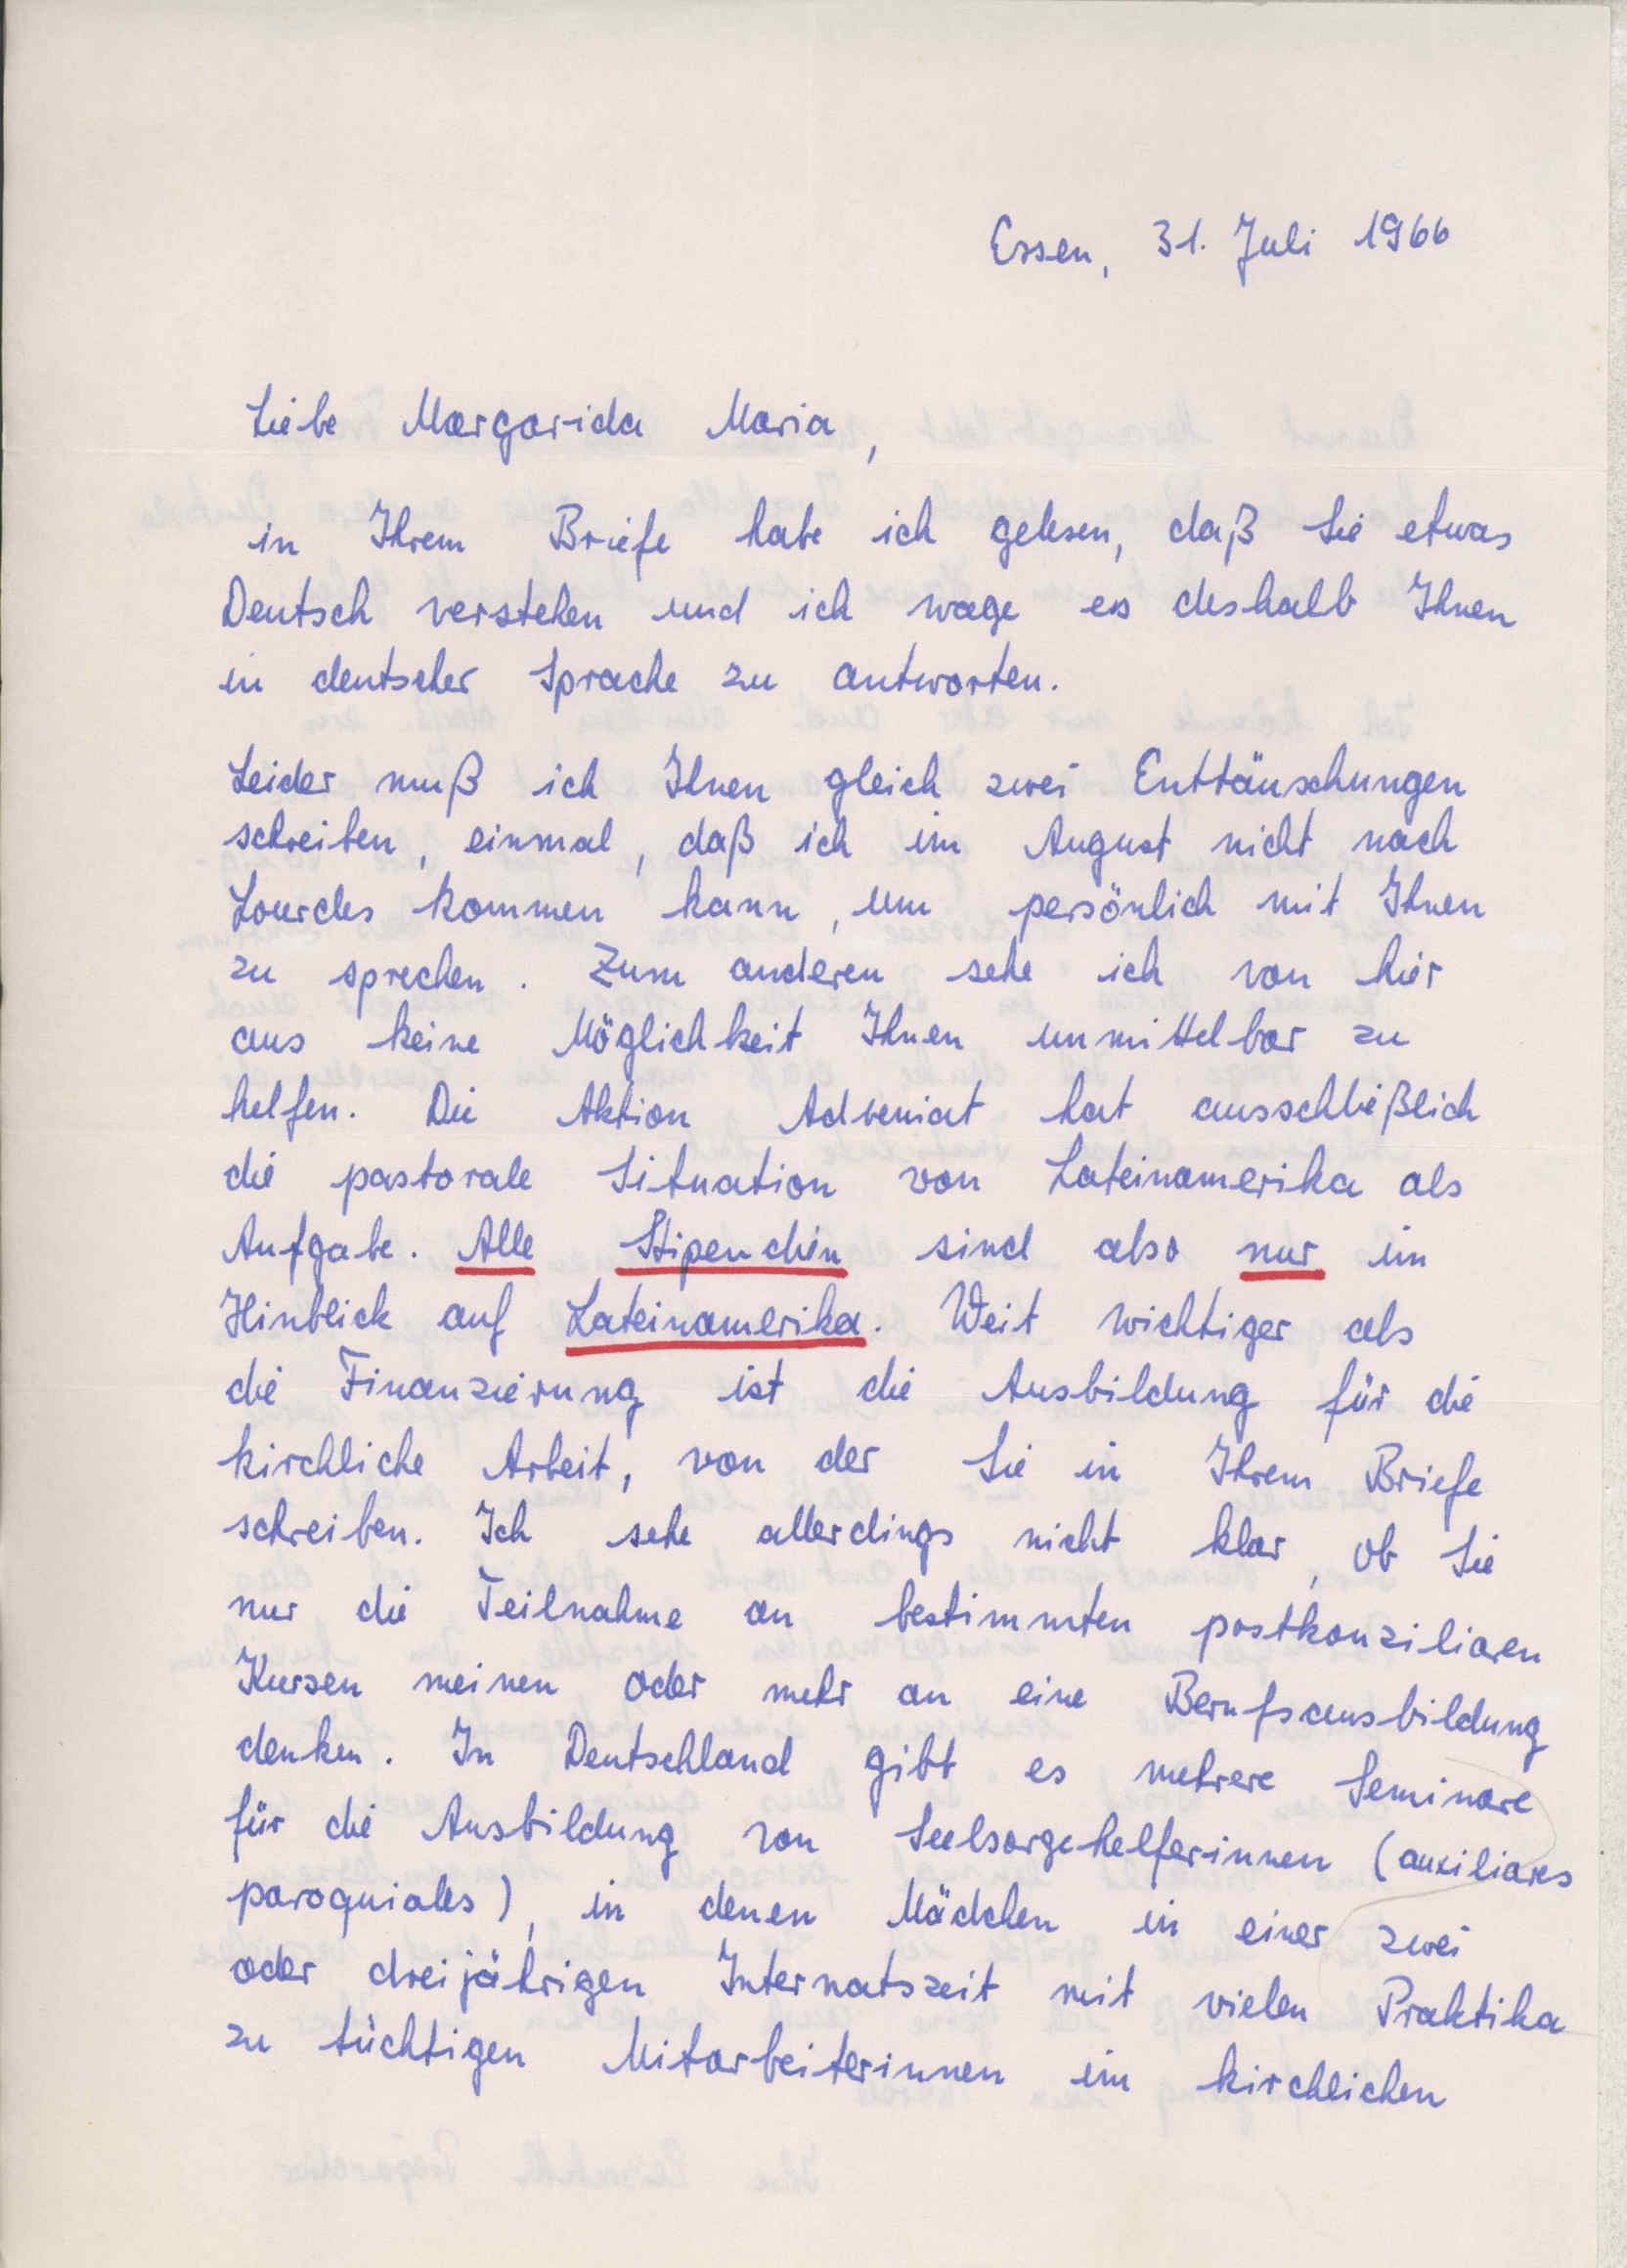 Essen, 31. Juli 1966
Liebe Margarida Maria,
in Ihrem Briefe habe ich gelesen, daß Sie etwas
Deutsch verstehen und ich wage es deshalb Ihnen
in deutscher Sprache zu antworten.
Leider muß ich Ihnen gleich zwei Enttäuschungen
schreiben, einmal, daß ich im August nicht nach
Lourdes kommen kann, um persönlich mit Ihnen
zu sprechen. Zum anderen sehe ich von hier
aus keine Möglichkeit Ihnen unmittelbar zu
helfen. Die Aktion Adveniat hat ausschließlich
die pastorale Situation von Lateinamerika als
Aufgabe. Alle Stipendien sind also nur im
Hinblick auf Lateinamerika. Weit wichtiger als
die Finanzierung ist die Ausbildung für die
kirchliche Arbeit, von der Sie in Ihrem Briefe
schreiben. Ich sehe allerdings nicht klar, ob Sie
nur die Teilnahme an bestimmten postkonziliaren
Kursen meinen oder mehr an eine Berufsausbildung
denken. In Deutschland gibt es mehrere Seminare
für die Ausbildung von Seelsorgehelferinnen (auxiliares
paroquiales), in denen Mädchen in einer zwei
oder dreijährigen Internatszeit mit vielen Praktika
zu tüchtigen Mitarbeiterinnen im kirchlichen